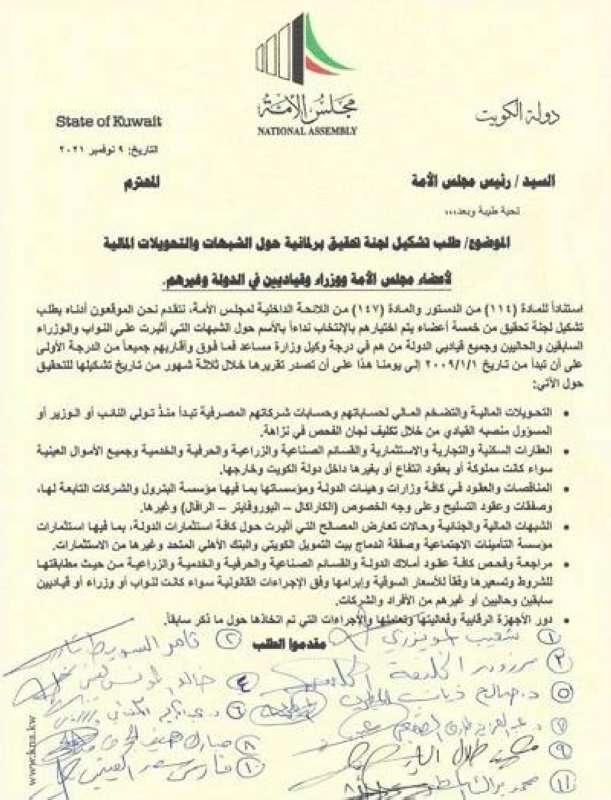 مجلس الأمة
NATIONAL ASSEMBLY
State of Kuwait
دولة الكويت
التاريخ: ٩ نوفمبر ٢٠٢١
السيد / رئيس مجلس الأمة
المحترم
تحية طيبة وبعد،،،
الموضوع/ طلب تشكيل لجنة تحقيق برلمانية حول الشبهات والتحويلات المالية
لأعضاء مجلس الأمة ووزراء وقياديين في الدولة وغيرهم.
استناداً للمادة (١١٤) من الدستور والمادة (١٤٧) من اللائحة الداخلية لمجلس الأمة، نتقدم نحن الموقعون أدناه بطلب
تشكيل لجنة تحقيق من خمسة أعضاء يتم اختيارهم بالإنتخاب نداءاً بالأسم حول الشبهات التي أثيرت على النواب والوزراء
السابقين والحاليين وجميع قياديي الدولة من هم في درجة وكيل وزارة مساعد فما فوق وأقاربهم جميعاً من الدرجة الأولى
على أن تبدأ من تاريخ ٢٠٠٩/١/١ إلى يومنا هذا على أن تصدر تقريرها خلال ثلاثة شهور من تاريخ تشكيلها للتحقيق
حول الآتي:
• التحويلات المالية والتضخم المالي لحساباتهم وحسابات شركاتهم المصرفية تبدأ منذ تولي النائب أو الوزير أو
المسؤول منصبه القيادي من خلال تكليف لجان الفحص في نزاهة.
• العقارات السكنية والتجارية والاستثمارية والقسائم الصناعية والزراعية والحرفية والخدمية وجميع الأموال العينية
سواء كانت مملوكة أو بعقود انتفاع أو بغيرها داخل دولة الكويت وخارجها.
• المناقصات والعقود في كافة وزارات وهيئات الدولة ومؤسساتها بما فيها مؤسسة البترول والشركات التابعة لها،
وصفقات وعقود التسليح وعلى وجه الخصوص (الكاراكال – اليوروفايتر – الرافال) وغيرها.
• الشبهات المالية والجنائية وحالات تعارض المصالح التي أثيرت حول كافة استثمارات الدولة، بما فيها استثمارات
مؤسسة التأمينات الاجتماعية وصفقة اندماج بيت التمويل الكويتي والبنك الأهلي المتحد وغيرها من الاستثمارات.
• مراجعة وفحص كافة عقود أملاك الدولة والقسائم الصناعية والحرفية والخدمية والزراعية من حيث مطابقتها
للشروط وتسعيرها وفقاً للأسعار السوقية وإبرامها وفق الإجراءات القانونية سواء كانت لنواب أو وزراء أو قياديين
سابقين وحاليين أو غيرهم من الأفراد والشركات.
• دور الأجهزة الرقابية وفعاليتها وتعاملها والإجراءات التي تم اتخاذها حول ما ذكر سابقاً.
مقدموا الطلب
① شعيب المويزري
② ثامر السويط
③ مرزوق الخليفة
④ خالد المونس
⑤ د. صالح ذياب المطيري
⑥
⑦
⑧ مبارك
⑨ مهند طلال الساير
⑩ فارس سعد العتيبي
⑪ محمد براك المطير
www.kna.kw